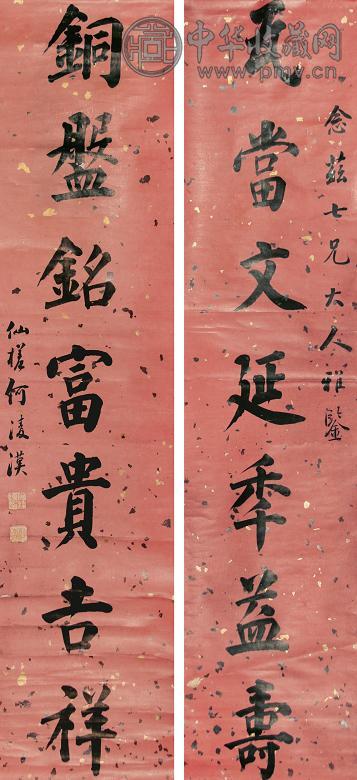 念兹七兄大人雅鑒
瓦當文延年益壽
銅盤銘富貴吉祥
仙槎何淩漢
中华收藏网
www.pmv.cn